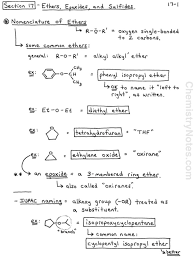 Section 17 - Ethers, Epoxides, and Sulfides.
17-1
Nomenclature of Ethers
R-Ö-R' = oxygen single-bonded
to 2 carbons.
Some common ethers:
general: R-O-R' = alkyl alkyl' ether
ex: O-CH
CH3
CH3
phenyl isopropyl ether
ex to name it "left to
right", as written.
ex: Et-O-Et = diethyl ether
ex: O = tetrahydrofuran = "THF"
ex: O = ethylene oxide = "oxirane"
an epoxide = a 3-membered ring ether.
also called "oxiranes".
IUPAC naming = alkoxy group (-OR) treated
as a substituent.
ex: O = isopropoxycyclopentane
"branch"
common name:
cyclopentyl isopropyl ether
ChemistryNotes.com